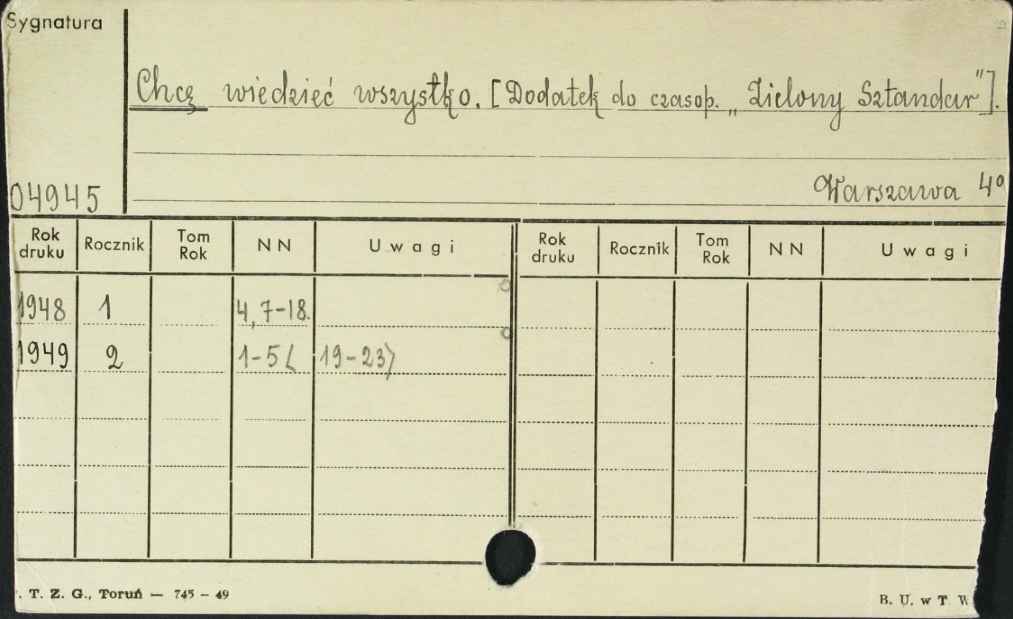 Sygnatura
Chcę wiedzieć wszystko. [Dodatek do czasop. „Zielony Sztandar"].
04945
Warszawa 4º
Rok druku Rocznik Tom Rok NN Uwagi Rok druku Rocznik Tom Rok NN Uwagi
1948 1 4, 7-18.
1949 2 1-5 ( 19-23)
. T. Z. G., Toruń — 745 - 49
B. U. w T